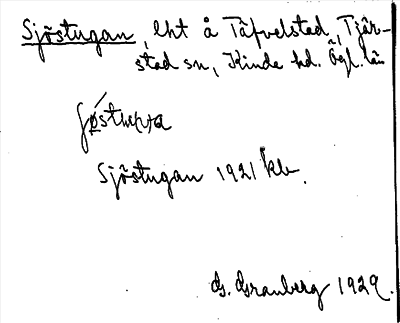 Sjöstugan, lht å Täfvelstad, Tjär-
stad sn, Kinda hd. Ögl. län
Sjöstugan 1921 kb.
G. Granberg 1929.